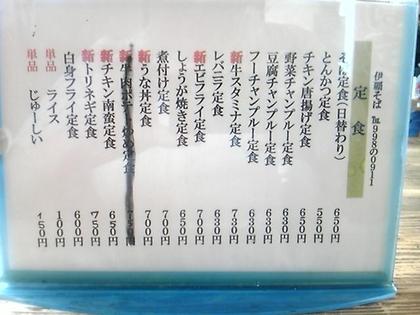 そば ℡998の0911
定食
そば定食(日替わり) 650円
とんかつ定食 550円
チキン唐揚げ定食 650円
野菜チャンプルー定食 630円
豆腐チャンプルー定食 630円
フーチャンプルー定食 630円
新牛スタミナ定食 730円
レバニラ定食 630円
新エビフライ定食 700円
しょうが焼き定食 650円
煮付け定食 700円
新うな丼定食 700円
新牛肉 定食 円
新チキン南蛮定食 650円
新トリネギ定食 750円
白身フライ定食 600円
単品 ライス 100円
単品 じゅーしい 150円